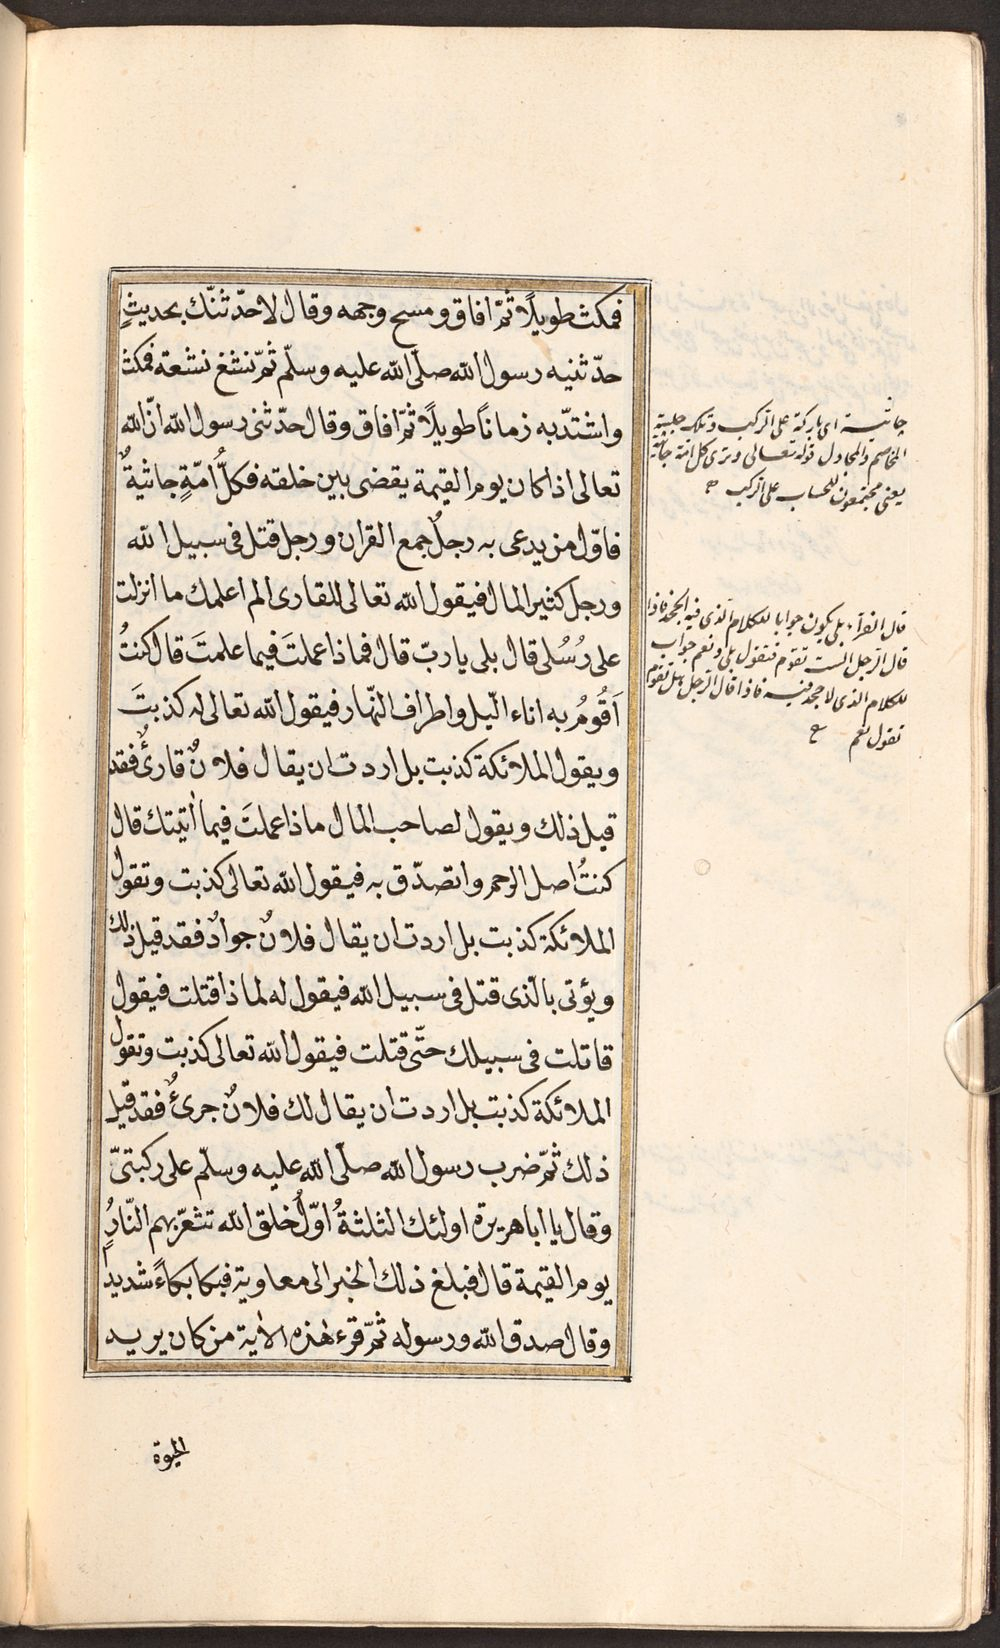 فمكث طويلًا ثمّ افاق ومسح وجهه وقال لاحدّثنّك بحديثٍ
حدّثنيه رسول الله صلّى الله عليه وسلّم ثمّ نشغ نشغة فمكث
واشتدّ به زمانًا طويلًا ثمّ افاق وقال حدّثنى رسول الله انّ الله
تعالى اذا كان يوم القيمة يقضى بين خلقه فكلُّ امّةٍ جاثيةٌ
فاوّل من يدعى به رجلٌ جمع القران ورجل قتل فى سبيل الله
ورجل كثير المال فيقول الله تعالى للقارى الم اعلمك ما انزلت
على رُسُلى قال بلى يا ربّ قال فماذا عملتَ فيما علمتَ قال كنتُ
اَقُومُ به اناء الّيل واطراف النّهار فيقول الله تعالى له كذبتَ
ويقول الملائكة كذبت بل اردت ان يقال فلانٌ قارئٌ فقد
قيل ذلك ويقول لصاحب المال ماذا عملتَ فيما اٰتيتك قال
كنتُ اصل الرحم واتصدّق به فيقول الله تعالى كذبت وتقول
الملائكة كذبت بل اردت ان يقال فلانٌ جوادٌ فقد قيل ذلك
ويؤتى بالّذى قتل فى سبيل الله فيقول له لماذا قتلت فيقول
قاتلت فى سبيلك حتّى قتلت فيقول الله تعالى كذبت وتقول
الملائكة كذبت بل اردت ان يقال لك فلانٌ جرئٌ فقد قيل
ذلك ثمّ ضرب رسول الله صلّى الله عليه وسلّم على ركبتىّ
وقال يا ابا هريرة اولئك الثلثةُ اوّلُ خلق الله تسّعّر بهم النّارُ
يوم القيمة قال فبلغ ذلك الخبر الى معاوية فبكا بكاءً شديدًا
وقال صدق الله ورسوله ثمّ قرء هٰذه الاٰية من كان يريد
الحيوة
جاثية اى باركة على الركب وتلك جلسة
المخاصم والمجادل قوله تعالى وترى كل امة جاثية
يعنى مجتمعون للحساب على الركب
قال الفرآء بلى يكون جوابا للكلام الذى فيه الجحد فاذا
قال الرجل الست تقوم فتقول بلى ونعم جواب
للكلام الذى لا جحد فيه فاذا قال الرجل هل تقوم
تقول نعم